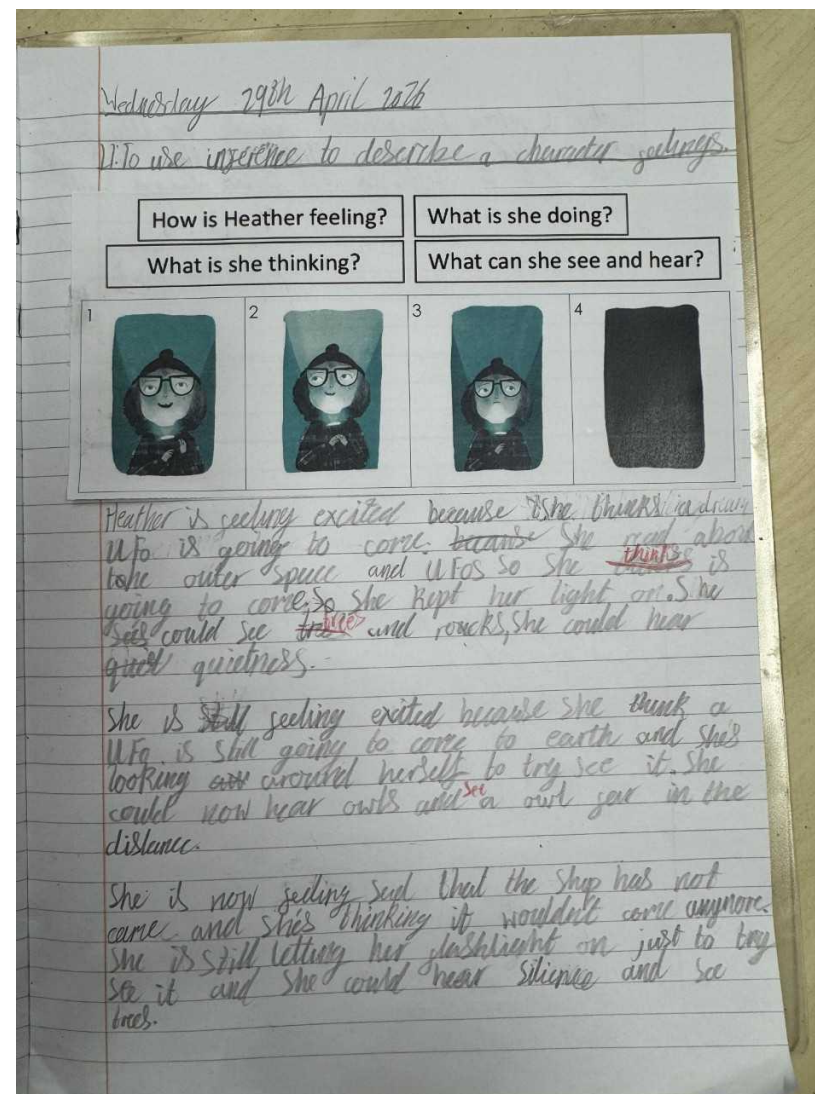 Wednesday 29th April 2026
LI: To use inference to describe a character feelings.
How is Heather feeling? What is she doing?
What is she thinking? What can she see and hear?
1 2 3 4
Heather is feeling excited because she thinks a
UFO is going to come. because She read about
outer space and UFOs So she thinks is
going to come. So she kept her light on. She
could see trees and roucks, She could hear
quiet quietness.
She is still feeling exited because she think a
UFO is still going to come to earth and she's
looking around herself to try see it. She
could now hear owls and see a owl far in the
distance.
She is now feeling sad that the ship has not
came and she's thinking it wouldn't come anymore.
She is still letting her flashlight on just to try
see it and she could hear silience and see
trees.